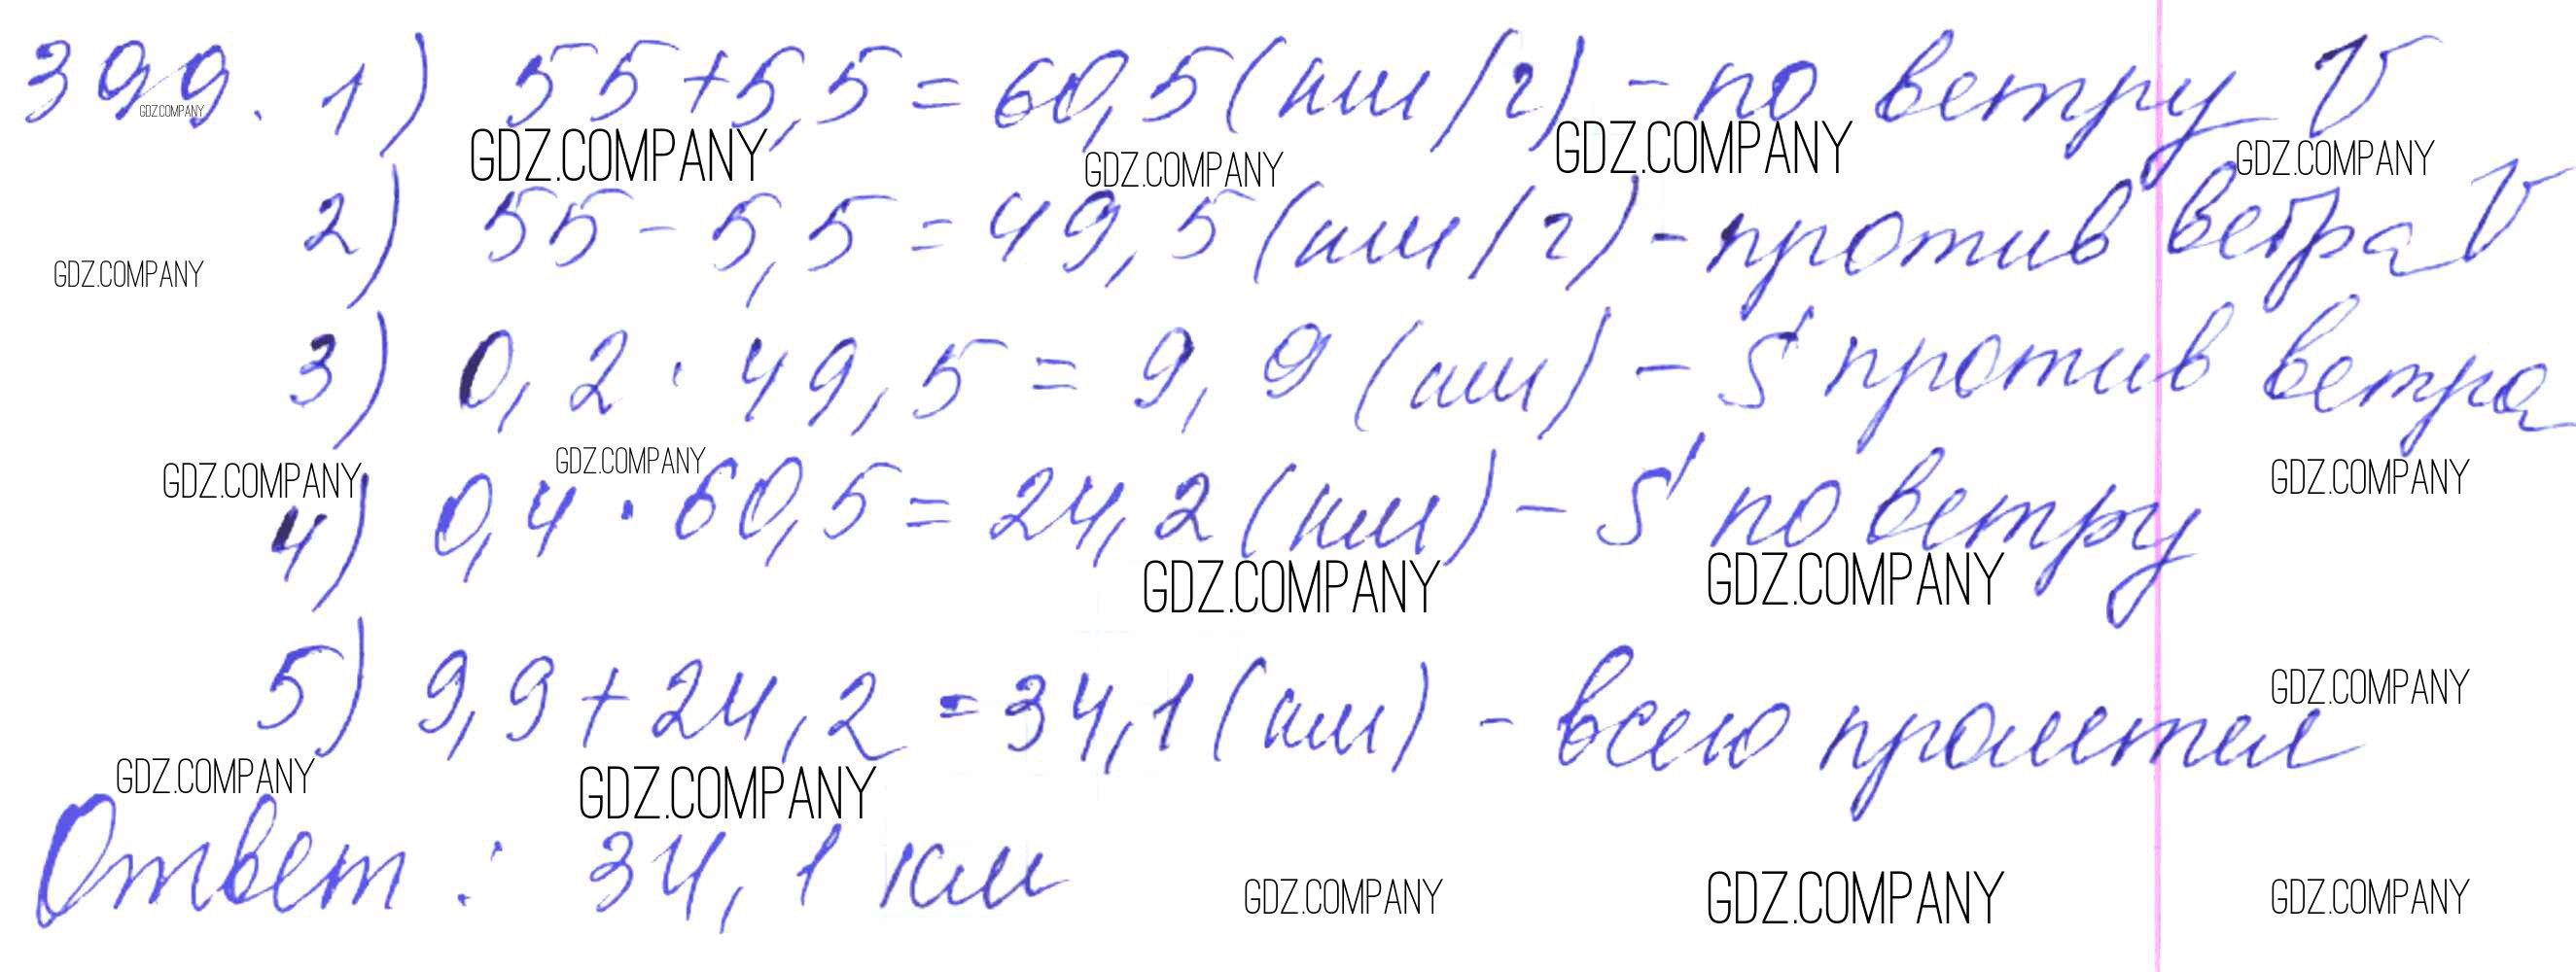 399. 1) 55+5,5=60,5(км/ч) - по ветру V
GDZ.COMPANY
GDZ.COMPANY GDZ.COMPANY GDZ.COMPANY GDZ.COMPANY
2) 55-5,5=49,5(км/ч) - против ветра V
GDZ.COMPANY
3) 0,2·49,5=9,9(км) - S против ветра
GDZ.COMPANY GDZ.COMPANY GDZ.COMPANY
4) 0,4·60,5=24,2(км) - S по ветру
GDZ.COMPANY GDZ.COMPANY
5) 9,9+24,2=34,1(км) - всего пролетел
GDZ.COMPANY
GDZ.COMPANY GDZ.COMPANY
Ответ: 34,1 км
GDZ.COMPANY GDZ.COMPANY GDZ.COMPANY